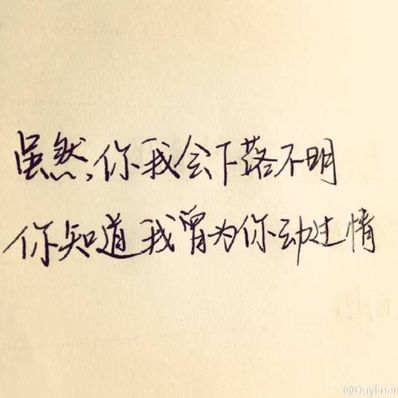 虽然,你我会下落不明
你知道我曾为你动过情